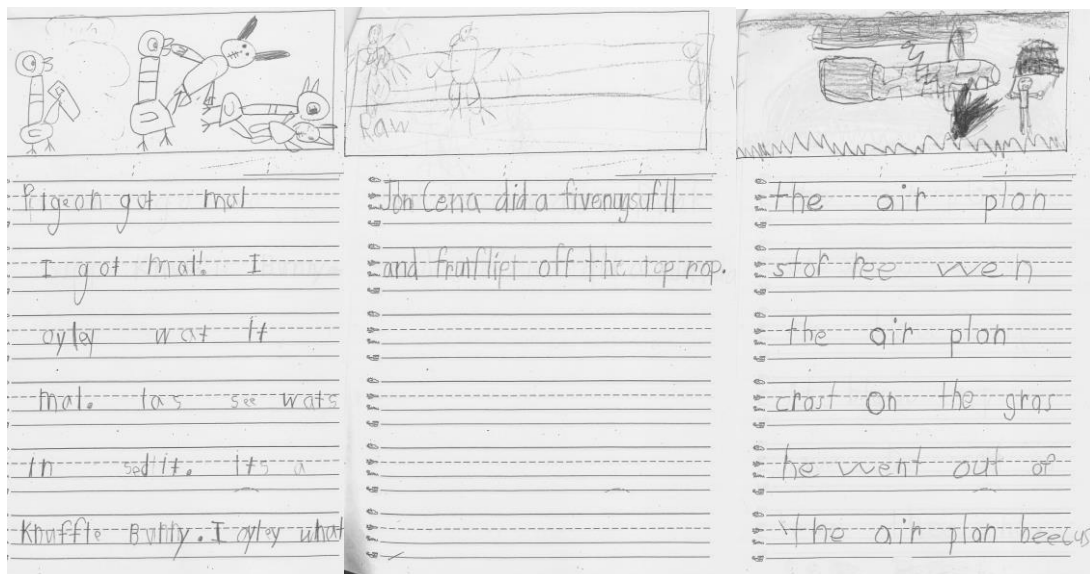 Pigeon got mal
I got mal. I
oyley wat It
mal. las see wats
In sed it. its a
Knuffle Bunny. I oyley what
Raw
Jon Cena did a fivenuysufll
and frunflipt off the top rop.
the air plan
stor ree wen
the air plan
crast on the gras
he went out of
the air plan beecus